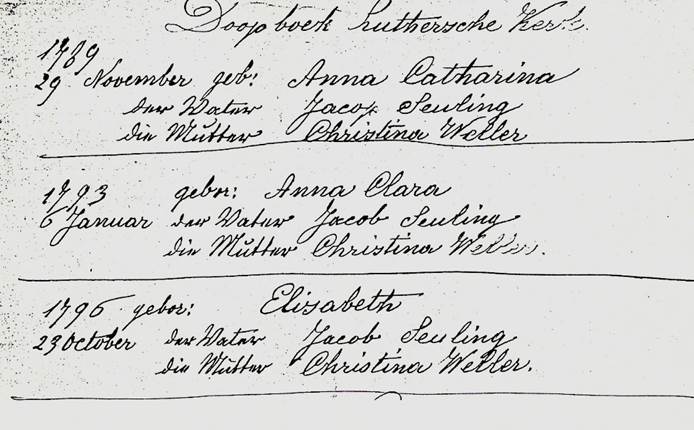 Doop boek Luthersche Kerk
1789
29 November geb: Anna Catharina
der Vater Jacob Seuling
die Mutter Christina Weller
1793 gebor: Anna Clara
6 Januar der Vater Jacob Seuling
die Mutter Christina Weller.
1796 gebor: Elisabeth
23 October der Vater Jacob Seuling
die Mutter Christina Weller.